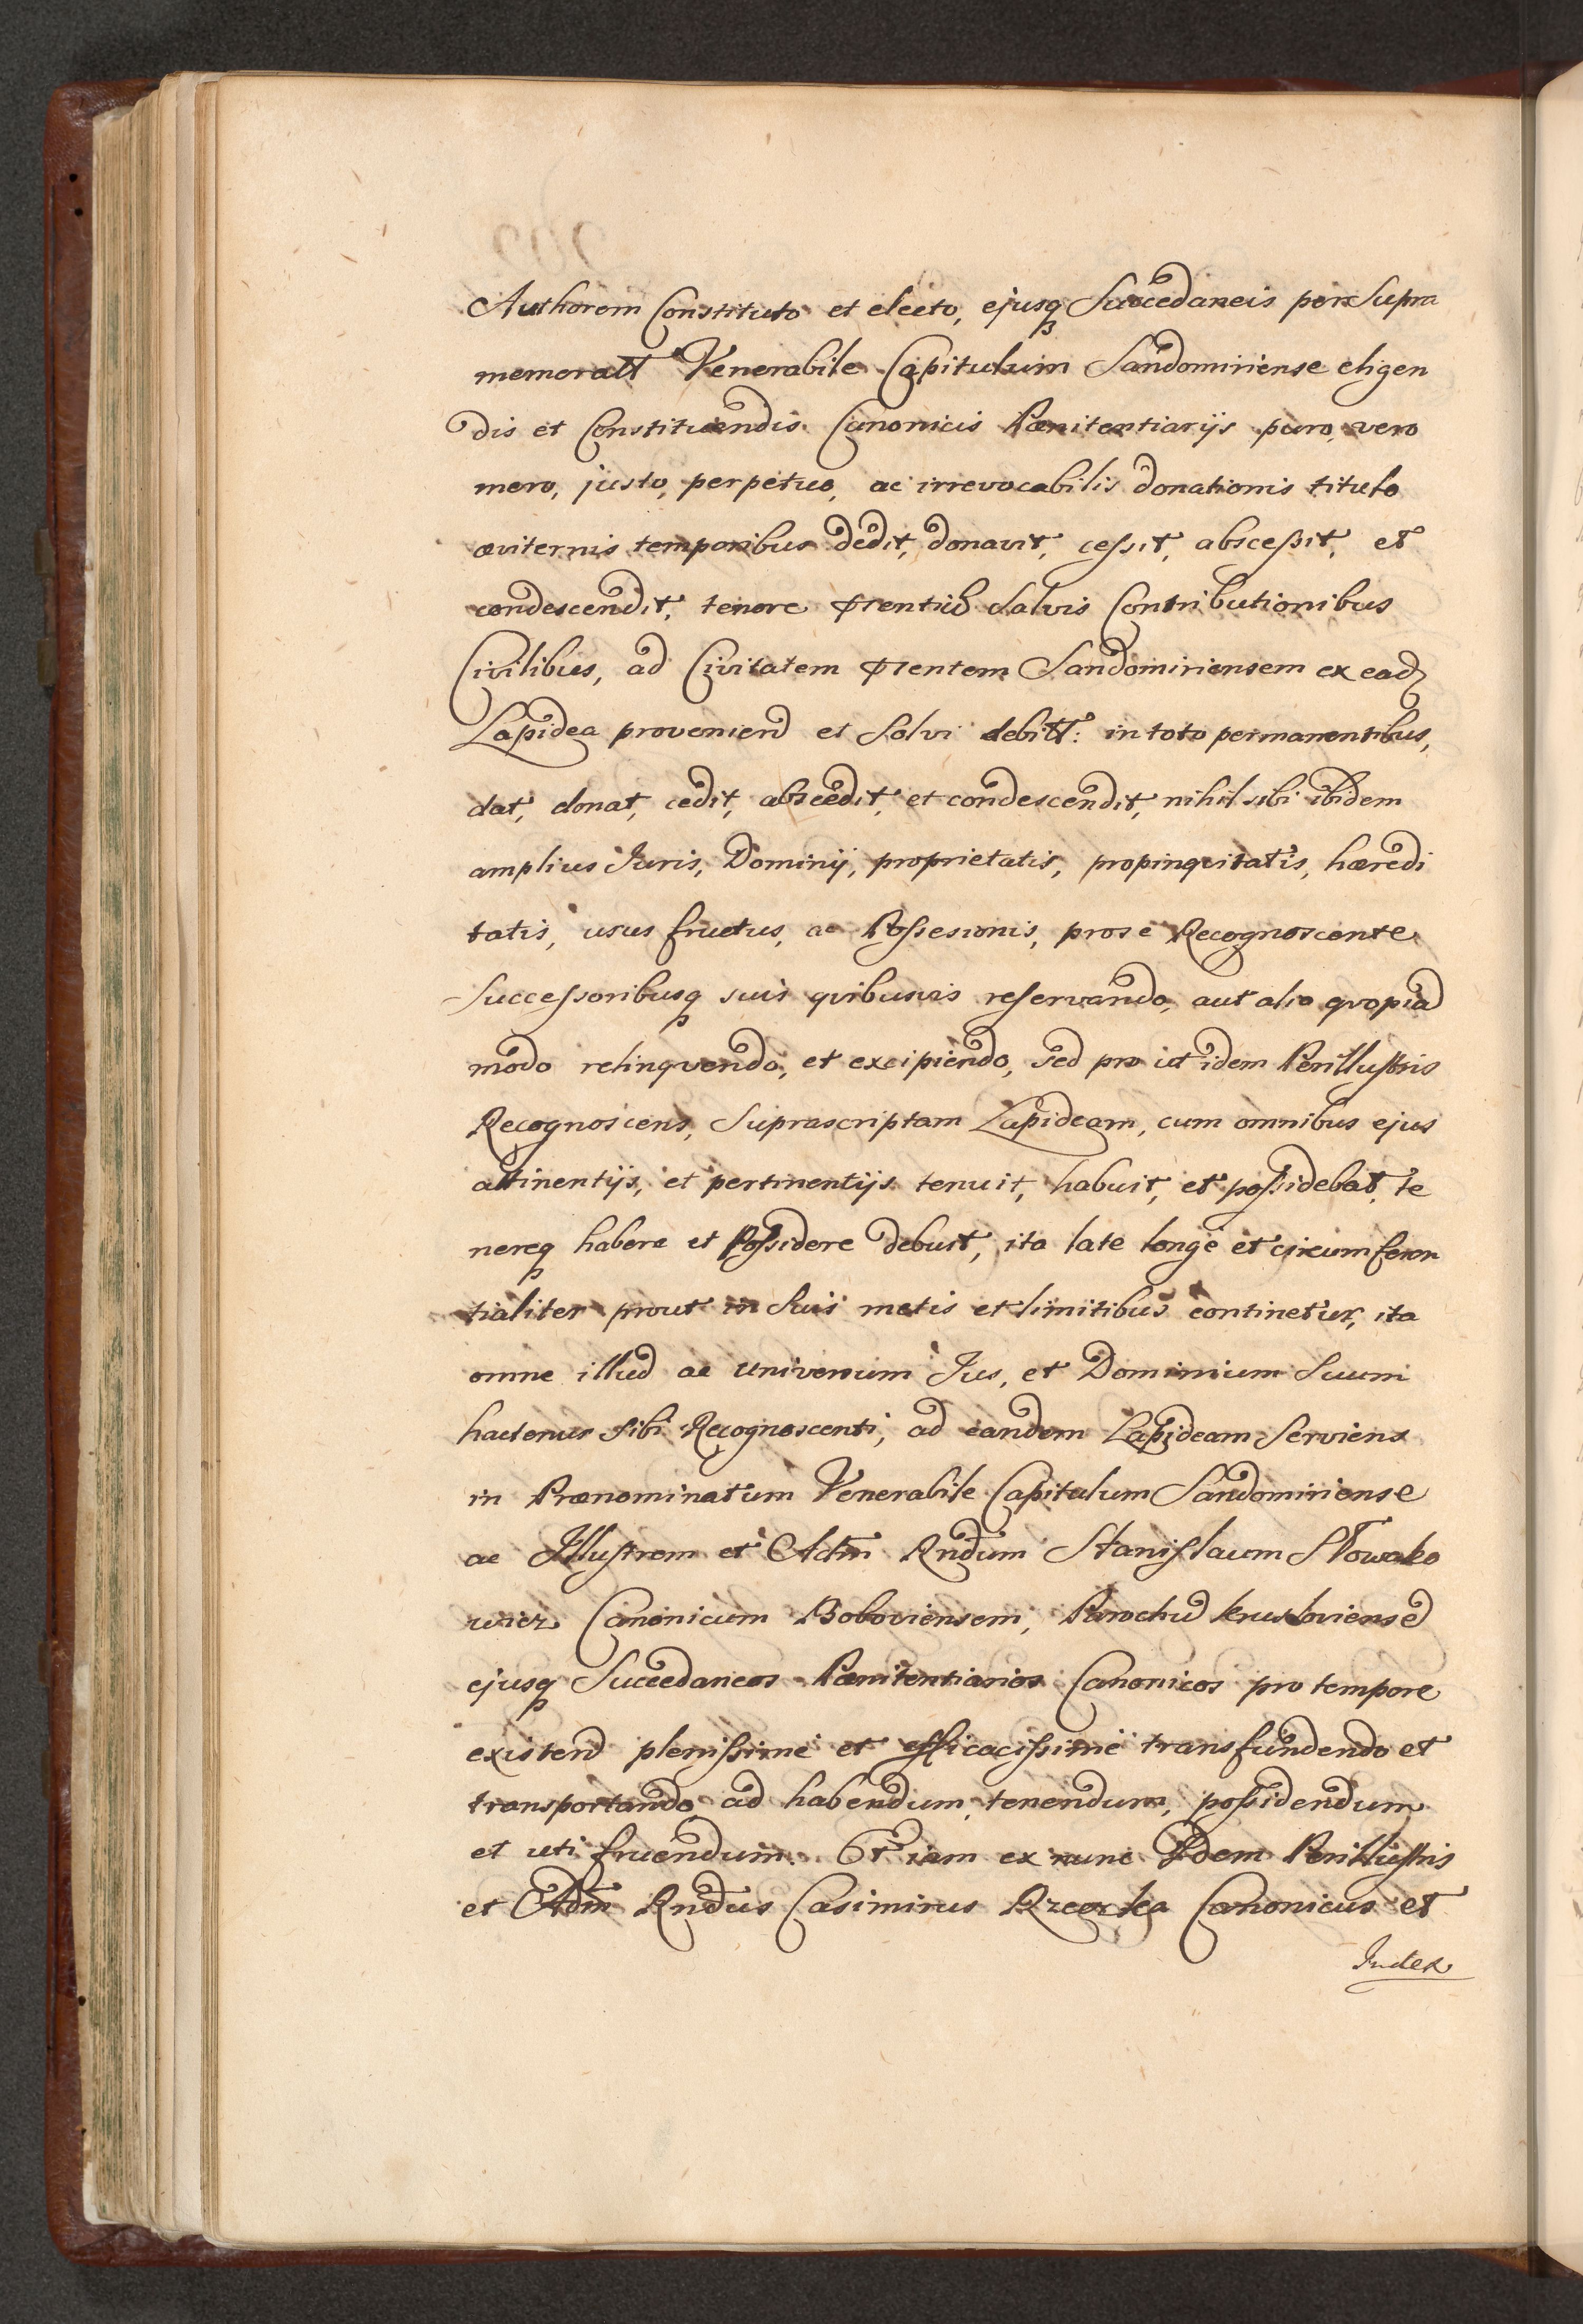 Authorem Constituto et electo, ejusq Succedaneis per Supra
memoratt Venerabile Capitulum Sandomiriense eligen
dis et Constituendis Canonicis Pœnitentiarijs puro, vero
mero, justo, perpetuo, ac irrevocabilis donationis titulo
æviternis temporibus dedit, donavit, cessit, abscessit, et
condescendit, tenore prentiū Salvis Contributionibus
Civilibus, ad Civitatem prentem Sandomiriensem ex eadz
Lapidea proveniend et Solvi debitt: in toto permanentibus,
dat, donat, cedit, abscedit, et condescendit, nihil sibi ibidem
amplius Juris, Dominij, proprietatis, propinqvitatis, hæredi
tatis, usus fructus, ac Possesionis, pro se Recognoscente
Successoribusq suis qvibusvis reservando, aut alio qvopiā
modo relinqvendo, et excipiendo, sed pro ut idem Perillustris
Recognoscens, Suprascriptam Lapideam, cum omnibus ejus
attinentijs, et pertinentijs tenuit, habuit, et possidebat, te
nereq habere et Possidere debuit, ita late longe et circumferen
tialiter prout in Suis metis et limitibus continetur, ita
omne illud ac universum Jus, et Dominium Suum
hactenus sibi Recognoscenti, ad eandem Lapideam Serviens
in Prænominatum Venerabile Capitulum Sandomiriense
ac Illustrem et Adm Rndum Stanislaum Słowako
wicz Canonicum Boboviensem, Parochū
ejusq Succedaneos Pœnitentiarios Canonicos pro tempore
existend plenissime et efficacissime transfundendo et
transportando ad habendum, tenendum, possidendum
et uti fruendum. Et iam ex nunc Idem Perillustris
et Adm Rndus Casimirus Canonicus et
Judex